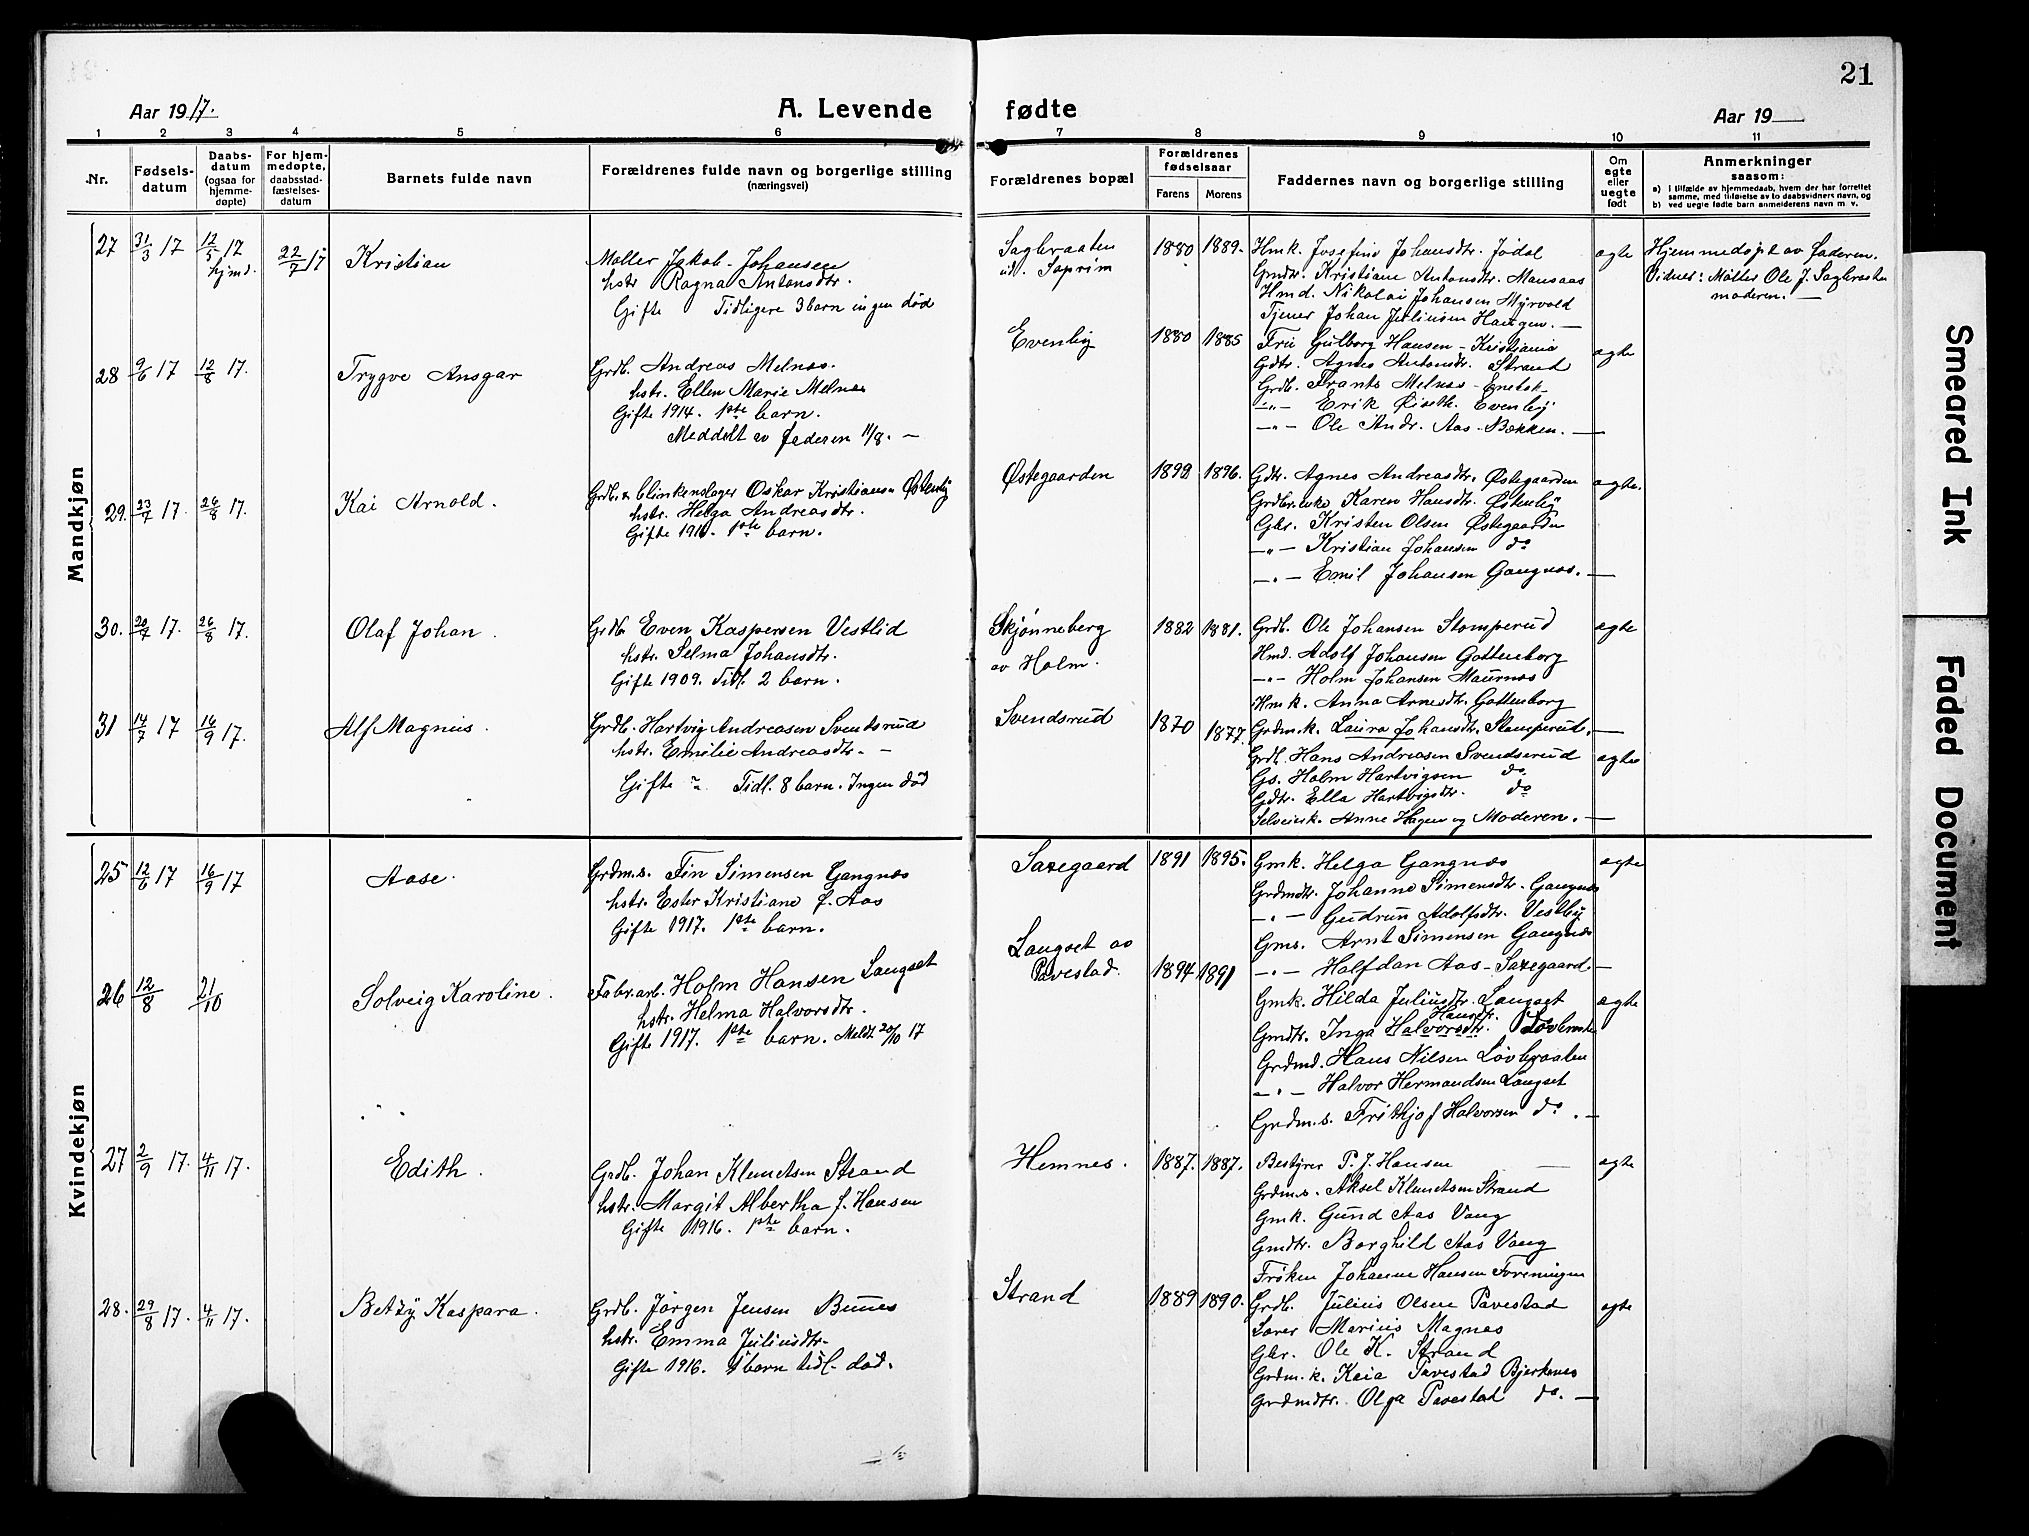 21
Aar 1917.
A. Levende fødte
Aar 19
1 2 3 4 5 6 7 8 9 10 11
Nr.
Fødsels-
datum
Daabs-
datum
(ogsaa for
hjemme-
døpte)
For hjem-
medøpte,
daabsstad-
fæstelses-
datum
Barnets fulde navn
Forældrenes fulde navn og borgerlige stilling
(næringsvei)
Forældrenes bopæl
Forældrenes
fødselsaar
Farens Morens
Faddernes navn og borgerlige stilling
Om
egte
eller
uegte
født
Anmerkninger
saasom:
a) i tilfælde av hjemmedaab, hvem der har forrettet
samme, med tilføielse av to daabsvidners navn, og
b) ved uegte fødte barn anmelderens navn m v.
Mandkjøn
27 31/3 17 12/5 17 hjmd. 22/7 17 Kristian
Møller Jakob Johansen
hstr Ragna Antonsdtr.
Gifte Tidligere 3 barn ingen død
Sagbraaten
1880 1889.
Hmk. Josefine Johansdtr. Jødal
Gmdtr. Kristiane Antonsdtr. Mansaas
Hmd. Nikolai Johansen Myrvold
Tjener Johan Juliusen Haugen. —
egte
Hjemmedøpt av faderen.
Vidner: Møller Ole J. Sagbraaten
moderen. —
28 9/6 17 12/8 17. Trygve Ansgar
Grdb. Andreas Melnæs.
hstr. Ellen Marie Melnæs
Gifte 1914. 1ste barn.
Meddelt av faderen 11/8. —
Evenby
1880 1885
Fru Gulborg Hansen - Kristiania
Gdtr. Agnes Antonsdtr. Strand
Grdb. Frants Melnæs -
—"— Erik Øiseth. Evenby
—"— Ole Andr. Aas - Bækken. —
egte
29. 23/7 17. 26/8 17. Kai Arnold.
Grdb. & blikkenslager Oskar Kristiansen Østenby
hstr. Helga Andreasdtr.
Gifte 1916. 1ste barn.
Østegaarden
1892 1896.
Gdtr. Agnes Andreasdtr. Østegaarden
Grdbr.enke Karen Hansdtr. Østenby
Gbr. Kristen Olsen Østegaarden
—"— Kristian Johansen do
—"— Emil Johansen Gangnæs. —
egte.
30. 20/7 17. 26/8 17. Olaf Johan.
Grdb. Even Kaspersen Vestlid
hstr. Selma Johansdtr.
Gifte 1909. Tidl. 2 barn.
Skjønneberg
av Holm.
1882 1881.
Grdb. Ole Johansen Stomperud
Hmd. Adolf Johansen Gottenborg
—"— Holm Johansen Maurnæs
Hmk. Anna Arnesdtr. Gottenborg
Grdm.k. Laura Johansdtr. Stomperud. —
egte
31 14/7 17 16/9 17. Alf Magnus.
Grdb. Hartvig Andreasen Svendsrud
hstr. Emilie Andreasdtr. —
Gifte ~ Tidl. 8 barn. Ingen død
Svendsrud
1870 1877.
Grdb. Hans Andreasen Svendserud
Gs. Holm Hartvigsen do
Gdtr. Ella Hartvigsdtr. do
Selveierk. Anne Hagen og Moderen. —
egte
Kvindekjøn
25 12/6 17 16/9 17 Aase.
Grdm.s. Fin Simensen Gangnæs
hstr. Ester Kristiane f. Aas
Gifte 1917. 1ste barn.
Saxegaard
1891 1895.
Gmk. Helga Gangnæs
Grdmdtr. Johanne Simensdtr. Gangnæs
—"— Gudrun Adolfsdtr. Vestby
Gms. Arnt Simensen Gangnæs
—"— Halfdan Aas - Saxegaard. —
egte
26 12/8 21/10 Solveig Karoline.
Fabr.arb. Holm Hansen Langset
hstr. Helma Halvorsdtr.
Gifte 1917. 1ste barn. Meldt 20/10 17
Langset av
Pavestad.
1894 1891
Gmk. Hilda Juliusdtr. Langset
Hansdtr.
Gmdtr. Inga Halvorsdtr.
Grdmd. Hans Nilsen Løvbraaten
—"— Halvor Hermandsen Langset
Grdm.s. Frithjof Halvorsen do. —
egte
27 2/9 17. 4/11 17. Edith.
Grdb. Johan Klemetsen Strand
hstr. Margit Albertha f. Hansen
Gifte 1916. 1ste barn.
Hemnes.
1887. 1887.
Bestyrer P. J. Hansen —
Grdm.s. Aksel Klemetsen Strand
Gmk. Gund Aas Vang
Gmdtr. Borghild Aas Vang
Frøken Johanne Hansen Foreningen
egte
28. 29/8 17. 4/11 17. Betzy Kaspara.
Grdb. Jørgen Jensen Bunes
hstr. Emma Juliusdtr.
Gifte 1916. 1 barn tidl. død.
Strand
1889 1890.
Grdb. Julius Olsen Pavestad
Lærer Marius Magnæs
Gbr. Ole K. Strand
Grdm.k. Kaia Pavestad Bjerknes
Grdmdtr. Olga Pavestad do. —
egte
Smeared Ink
Faded Document